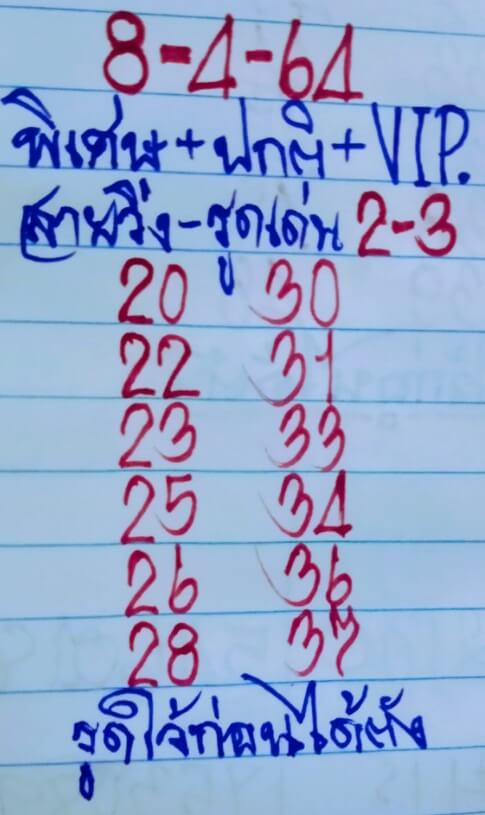 8-4-64
พิเศษ+ปกติ+VIP.
สายวิ่ง-รูดเด่น 2-3
20 30
22 31
23 33
25 34
26 36
28 37
รูดใจ้ก่อนได้ตัง